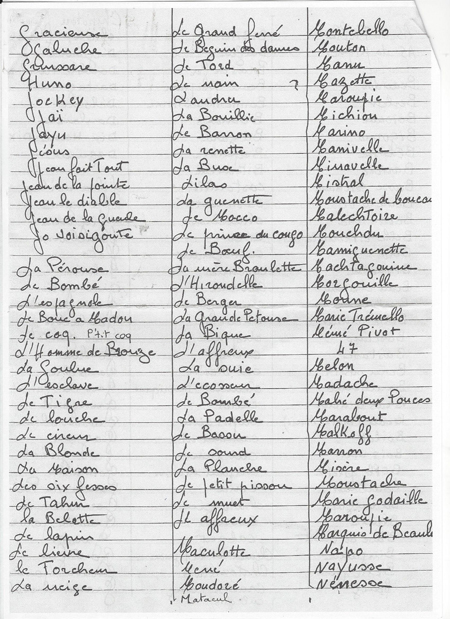 Gracieuse
Ogaluche
Huno
Jockey
Jaï
Jayu
Jésus
Jean fait Tout
Jean de la pointe
Jean le diable
Jean de la gueule
Jo Voisigoute
La Pérouse
Le Bombé
L'espagnole
Le Bouc à Madou
Le coq. P'tit coq
L'Homme de Bronze
La Goulue
L'esclave
Le Tigre
Le louche
Le cireur
La Blonde
La Maison
Les six fesses
Le Tahin
La Belotte
Le lapin
Le lièvre
Le Torcheur
La neige
Le Grand ferré
Le Beguin des dames
Le Tord
Le nain ?
Landru
La Bouillie
Le Barron
La renette
La Buse
Lilas
La guenette
Le Mocco
Le prince du congo
Le Bœuf.
La mère Braulette
L'Hirondelle
Le Berger
La Grande Petouse
La Bique
L'affreux
La suie
L'ecosseur
Le Bombé
La Padelle
Le Basou
Le sourd
La Planche
Le petit pissou
Le muet
L'affreux
Maculotte
Mémé
Moudoré
Matacul
Montebello
Mouton
Manu
Mazette
Maroufie
Michiou
Marino
Manivelle
Miravelle
Mistral
Moustache de
Malechtoire
Mouchdu
Mamiguenette
Machtagouine
Morgouille
Morme
Marie Trémello
Mémé Pivot
47
Melon
Madache
Mahé deux Pouces
Marabout
Malkoff
Marron
Misère
Moustache
Marie godaille
Maroufie
Marquis de
Napo
Nayusse
Nénesse